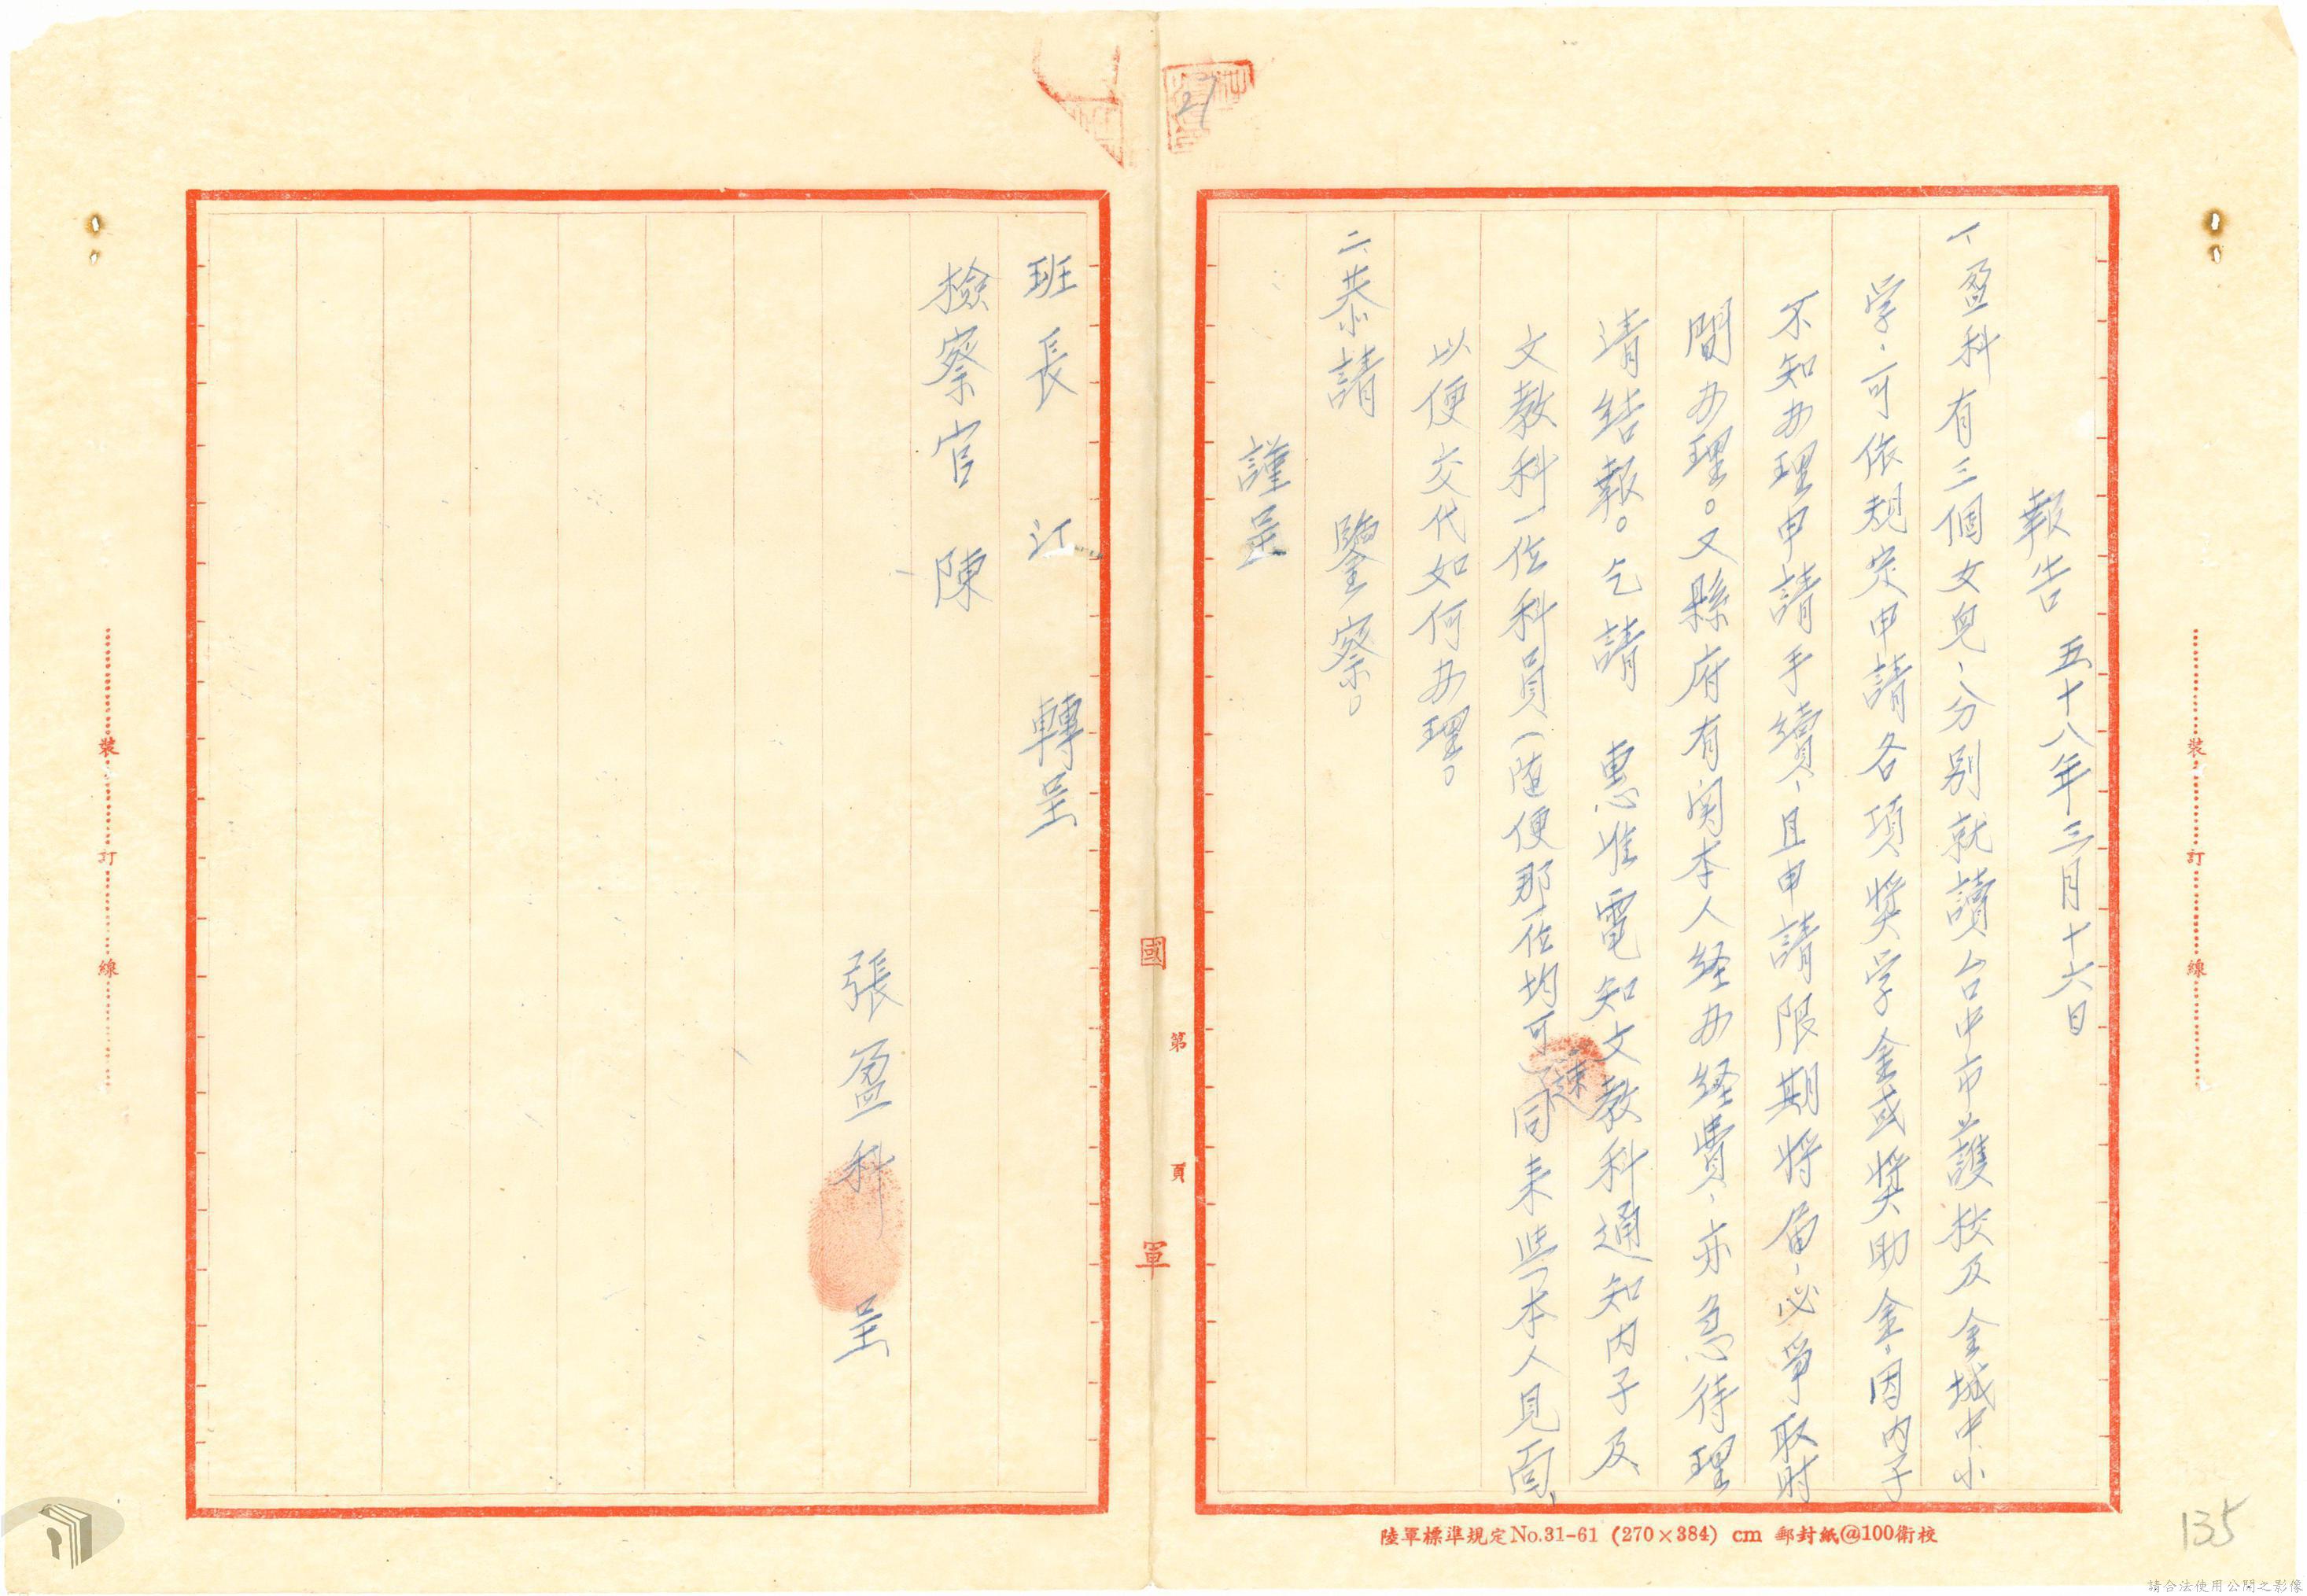 報告 五十八年三月十六日
一、盈科有三個女兒、分別就讀台中市立護校及金城中小
学、可依規定申請各項獎学金或獎助金、因內子
不知办理申請手續、且申請限期將屆、必爭取時
間办理。又縣府有関本人経办経費、亦急待理
清結報。乞請 惠准電知文教科通知內子及
文教科一位科員(随便那一位均可)速同来此、本人見面、
以便交代如何办理。
二、恭請 鑒察。
謹呈
班長 江 轉呈
檢察官 陳
張盈科 呈
21
國
軍
第 頁
裝 訂 線
裝 訂 線
陸軍標準規定No.31-61 (270×384) cm 郵封紙@100衛校
135
請合法使用公開之影像